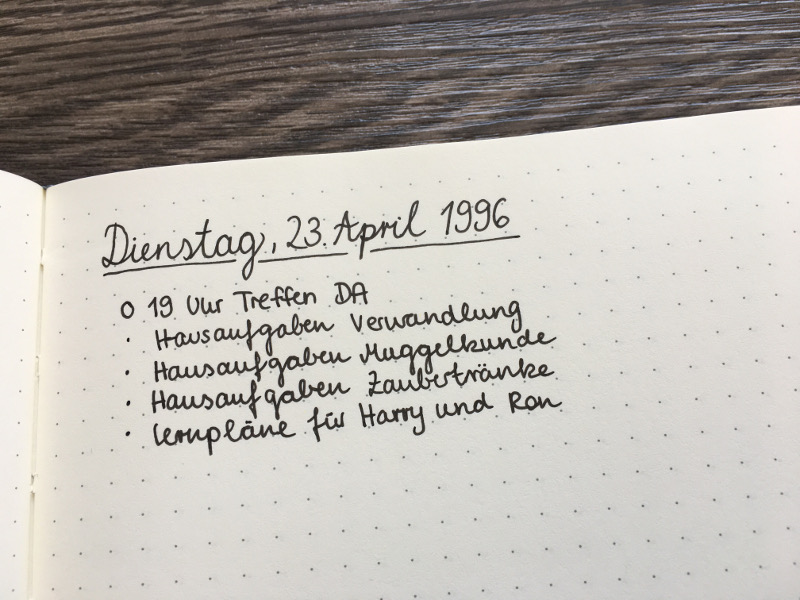 Dienstag, 23. April 1996
O 19 Uhr Treffen DA
· Hausaufgaben Verwandlung
· Hausaufgaben Muggelkunde
· Hausaufgaben Zaubertränke
· Lernpläne für Harry und Ron